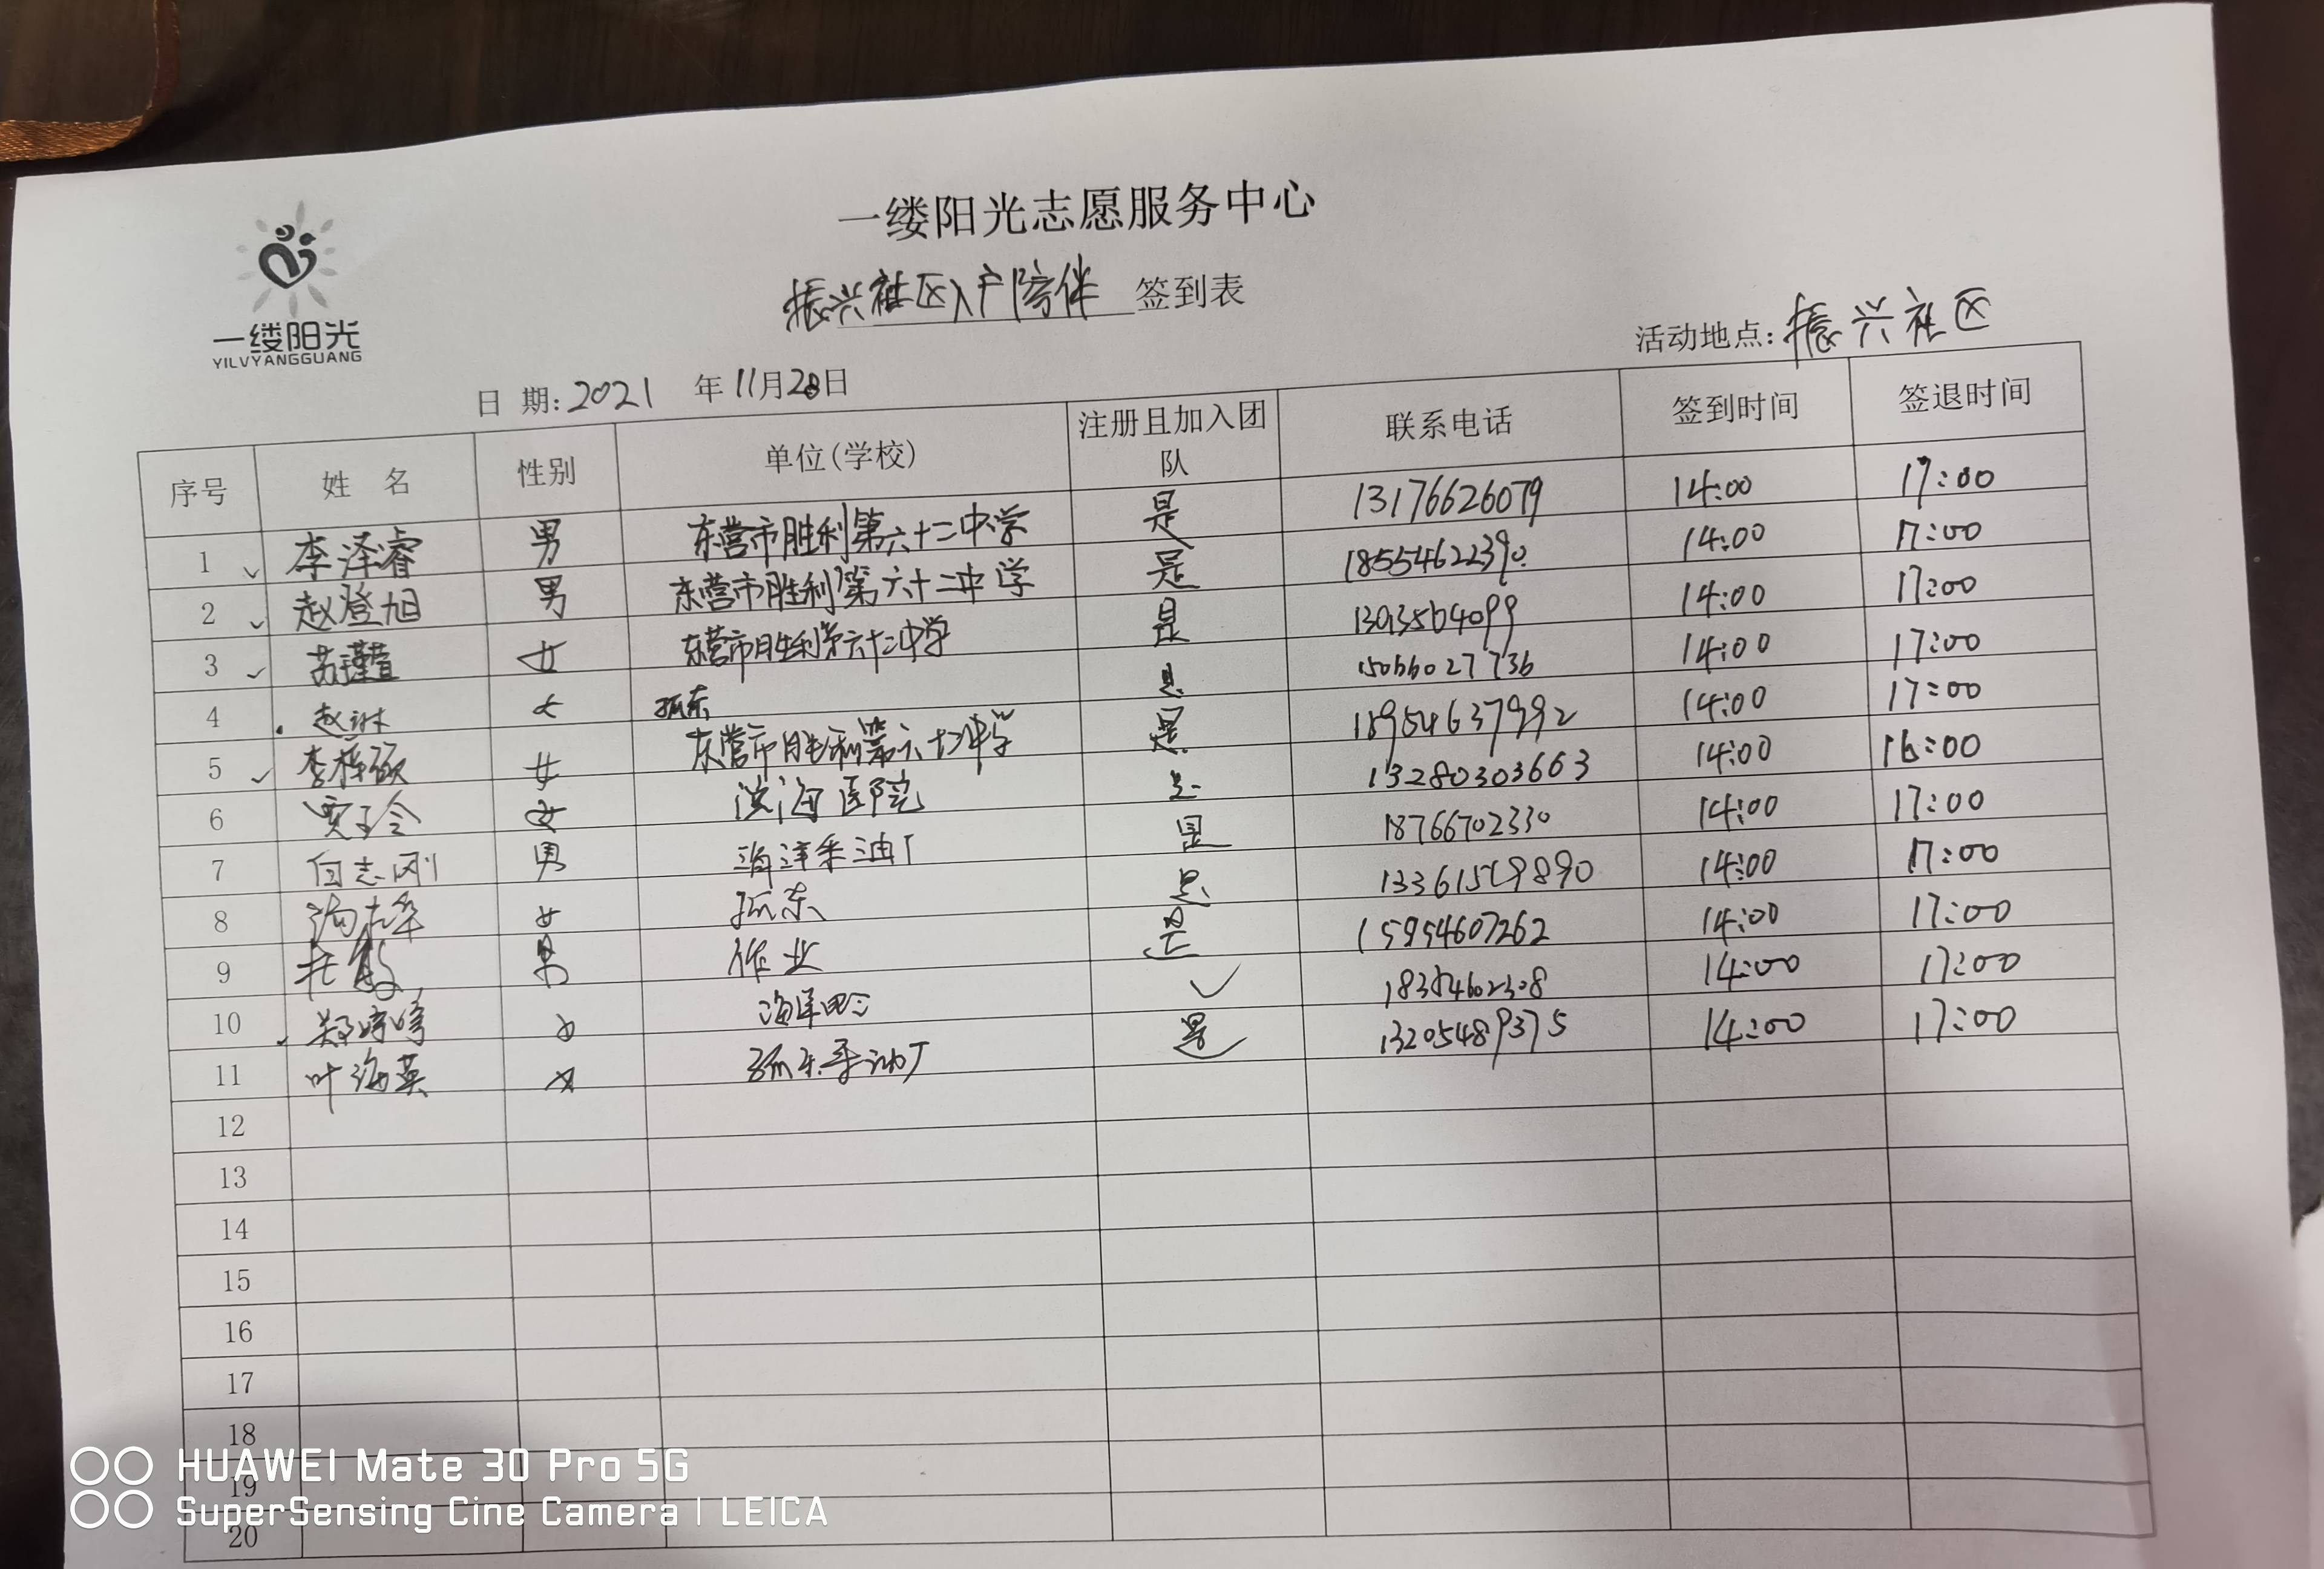 一缕阳光志愿服务中心
振兴社区入户陪伴 签到表
一缕阳光
YILVYANGGUANG
活动地点: 振兴社区
日 期: 2021 年 11月 28日
序号 姓 名 性别 单位(学校) 注册且加入团队 联系电话 签到时间 签退时间
1 李泽睿 男 东营市胜利第六十二中学 是 13176626079 14:00 17:00
2 赵登旭 男 东营市胜利第六十二中学 是 18554622390 14:00 17:00
3 女 东营市胜利第六十二中学 是 14:00 17:00
4 赵琳 女 孤东 是 15066027736 14:00 17:00
5 女 东营市胜利第六十二中学 是 18954637992 14:00 17:00
6 贾子令 女 滨海医院 是 13280303663 14:00 16:00
7 白志刚 男 海洋采油厂 是 18766702330 14:00 17:00
8 女 孤东 是 14:00 17:00
9 男 作业 是 15954607262 14:00 17:00
10 女 ✓ 14:00 17:00
11 叶海英 女 孤东采油厂 是 13205489375 14:00 17:00
12
13
14
15
16
17
18
19
20
HUAWEI Mate 30 Pro 5G
SuperSensing Cine Camera | LEICA